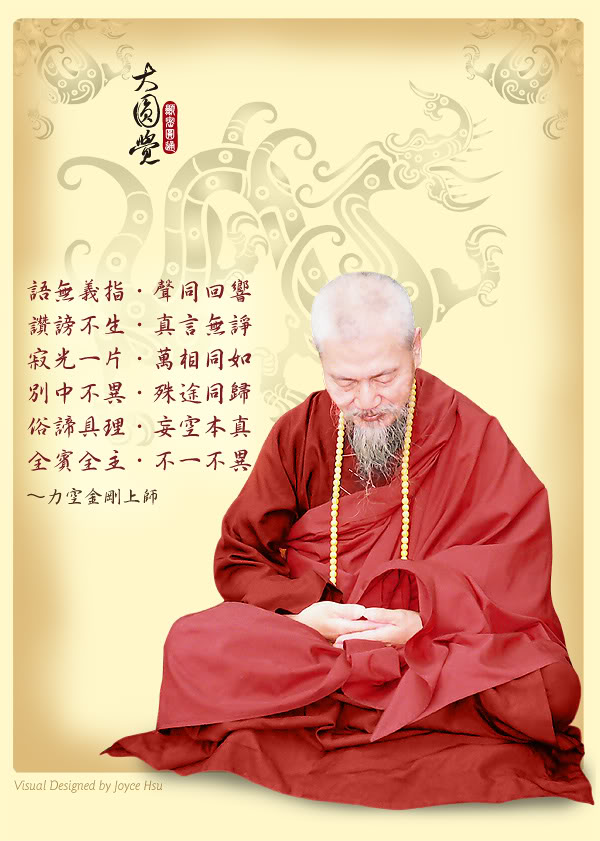 大圓覺
觀密圓通
語無義指·聲同回響
讚謗不生·真言無諍
寂光一片·萬相同如
別中不異·殊途同歸
俗諦具理·妄空本真
全賓全主·不一不異
～力空金剛上師
Visual Designed by Joyce Hsu